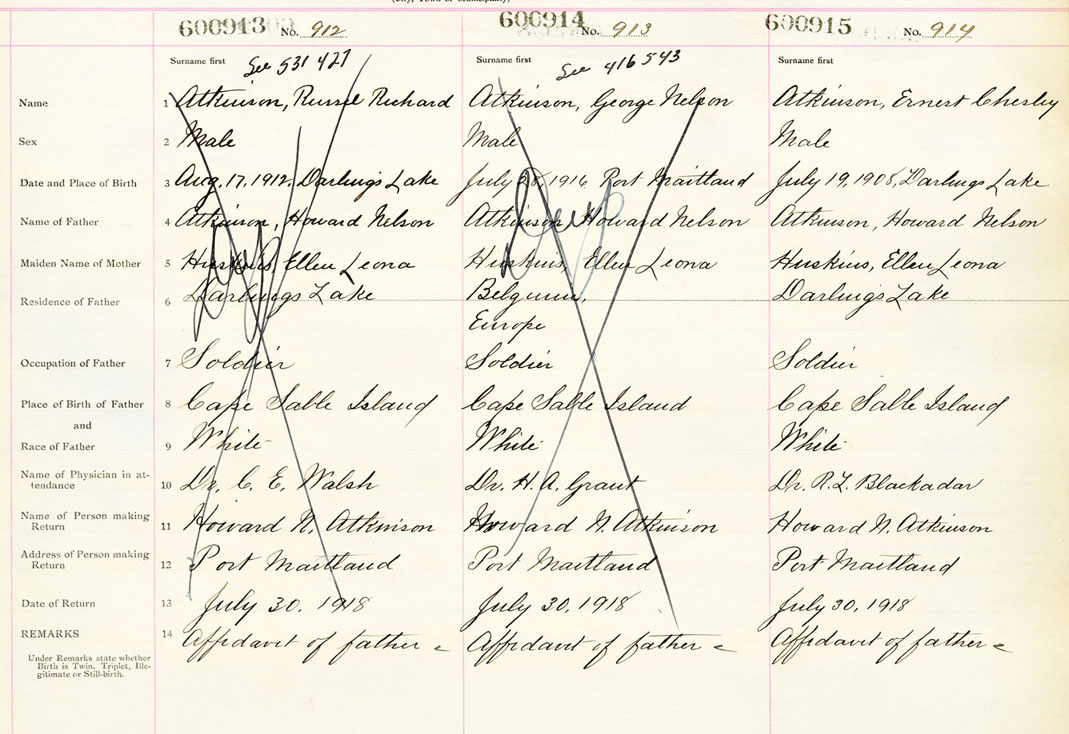 (City, Town or Municipality)
600913 No. 912 600914 No. 913 600915 No. 914
Surname first See 531 427 Surname first See 416 543 Surname first
Name 1 Atkinson, Russel Richard Atkinson, George Nelson Atkinson, Ernest Chesley
Sex 2 Male Male Male
Date and Place of Birth 3 Aug. 17, 1912. Darlings Lake July 1916 Port Maitland July 19, 1908, Darlings Lake
Name of Father 4 Atkinson, Howard Nelson Atkinson, Howard Nelson Atkinson, Howard Nelson
Maiden Name of Mother 5 Huskins, Ellen Leona Huskins, Ellen Leona Huskins, Ellen Leona
Residence of Father 6 Darlings Lake Belgium, Darlings Lake
Europe
Occupation of Father 7 Soldier Soldier Soldier
Place of Birth of Father 8 Cape Sable Island Cape Sable Island Cape Sable Island
and
Race of Father 9 White White White
Name of Physician in at-
tendance 10 Dr. C. E. Walsh Dr. H. A. Grant Dr. R. L. Blackadar
Name of Person making
Return 11 Howard N. Atkinson Howard N. Atkinson Howard N. Atkinson
Address of Person making
Return 12 Port Maitland Port Maitland Port Maitland
Date of Return 13 July 30. 1918 July 30. 1918 July 30, 1918
REMARKS 14 Affidavit of father Affidavit of father Affidavit of father
Under Remarks state whether
Birth is Twin, Triplet, Ille-
gitimate or Still-birth.